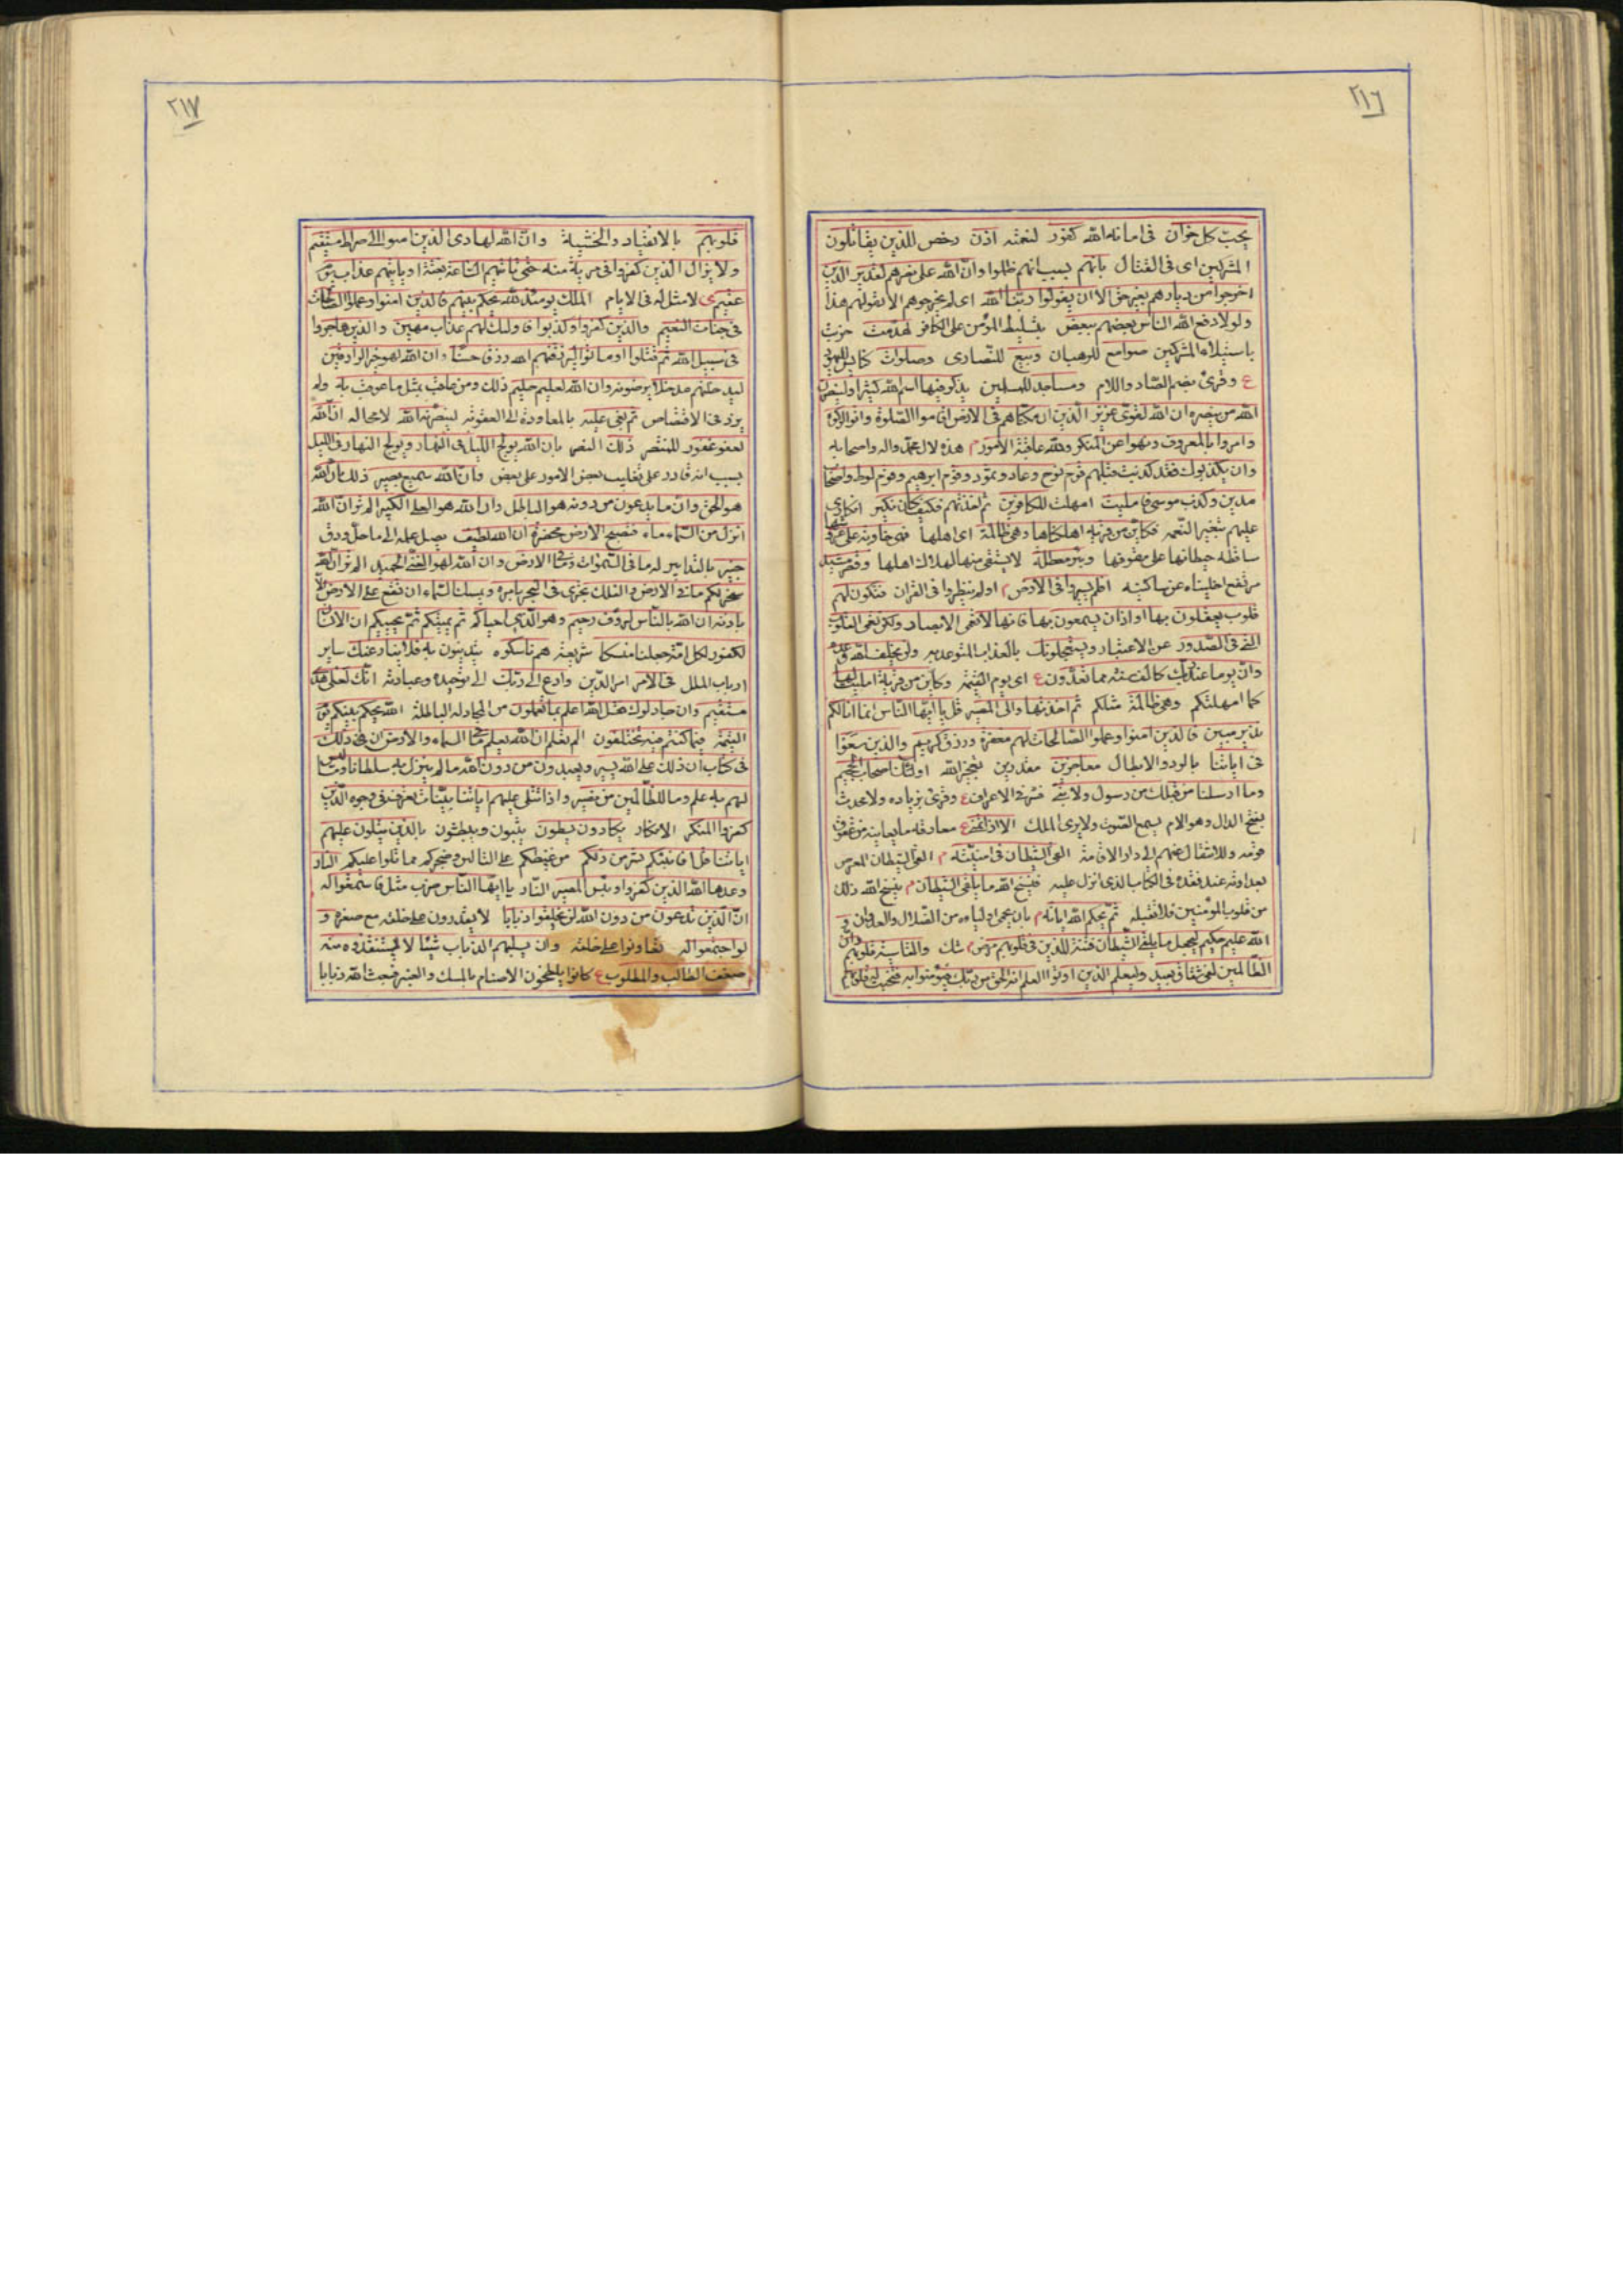 ٢١٦
يحبّ كل خوّان فى امانة الله كفور لنعمته اذن رخص للذين يقاتلون
المشركين اى فى القتال بانهم بسبب انهم ظلموا وانّ الله على نصرهم لقدير الذين
اخرجوا من ديارهم بغير حق الا ان يقولوا ربنا الله اى لم يخرجوهم الا لقولهم هذا
ولولا دفع الله الناس بعضهم ببعض بتسليط المؤمن على الكافر لهدمت خربت
باستيلاء المشركين صوامع للرهبان وبيع للنّصارى وصلوات كنايس لليهود
ع وقرئ بضم الصّاد واللام ومساجد للمسلمين يذكر فيها اسم الله كثيرا ولينصرن
الله من ينصره ان الله لقوىّ عزيز الّذين ان مكنّاهم فى الارض اقاموا الصّلوة واتوا الزكوة
وامروا بالمعروف ونهوا عن المنكر ولله عاقبة الامور م هذه لال محمّد واله واصحابه
وان يكذبوك فقد كذبت قبلهم قوم نوح وعاد وثمود وقوم ابرهيم وقوم لوط واصحاب
مدين وكذب موسى فامليت امهلت للكافرين ثم اخذتهم فكيف كان نكير انكارى
عليهم بتغيير النّعمه فكاين من قرية اهلكناها وهى ظالمة اى اهلها فهى خاوية على عروشها
ساقطه حيطانها على سقوفها وبئر معطلة لا يستقى منها لهلاك اهلها وقصر مشيد
مرتفع اخليناه عن ساكنيه افلم يسيروا فى الارض م اولم ينظروا فى القران فتكون لهم
قلوب يعقلون بها او اذان يسمعون بها فانها لا تعمى الابصار ولكن تعمى القلوب
التى فى الصّدور عن الاعتبار ويستعجلونك بالعذاب المتوعد به ولن يخلف الله وعده
وانّ يوما عند ربّك كالف سنة مما تعدّون ع اى يوم القيمة وكاين من قرية امليت لها
كما امهلتكم وهى ظالمة مثلكم ثم اخذتها والىّ المصير قل يا ايّها النّاس انما انا لكم
نذير مبين فالذين امنوا وعملوا الصّالحات لهم مغفرة ورزق كريم والذين سعوا
فى اياتنا بالرد والابطال معاجزين مقدرين بعجز الله اولئك اصحاب الجحيم
وما ارسلنا من قبلك من رسول ولا نبىّ فسّر فى الاعراف ع وقرئ بزياده ولا محدث
بفتح الدال وهو الامام يسمع الصّوت ولا يرى الملك الا اذا تمنى ع مفارقة ما يعاينه من عقوق
قومه والانتقال عنهم الى دار الاقامة القى الشيطان فى امنيّته م القى الشيطان المعرض
بعداوته عند فقده فى الكتاب الذى انزل عليه فينسخ الله ما يلقى الشيطان م ينسخ الله ذلك
من قلوب المؤمنين فلا تقبله ثم يحكم الله اياته م بان يحمى اولياءه من الضّلال والعدوان و
الله عليم حكيم ليجعل ما يلقى الشّيطان فتنة للذين فى قلوبهم مرض شك والقاسية قلوبهم وان
الظّالمين لفى شقاق بعيد وليعلم الذين اوتوا العلم انه الحق من ربّك فيؤمنوا به فتخبت له قلوبهم
٢١٧
قلوبهم بالانقياد والخشية وانّ الله لهادى الذين امنوا الى صراط مستقيم
ولا يزال الذين كفروا فى مرية منه حتى تاتيهم السّاعة بغتة او ياتيهم عذاب يوم
عقيم لا مثل له فى الايام الملك يومئذ لله يحكم بينهم فالذين امنوا وعملوا الصّالحات
فى جنات النعيم والذين كفروا وكذّبوا فاولئك لهم عذاب مهين والذين هاجروا
فى سبيل الله ثم قتلوا او ماتوا ليرزقنهم الله رزقا حسنا وان الله لهو خير الرازقين
ليدخلنهم مدخلا يرضونه وان الله لعليم حليم ذلك ومن عاقب بمثل ما عوقب به ولم
يزد فى الاقتصاص ثم بغى عليه بالمعاودة الى العقوبة لينصرنه الله لا محاله انّ الله
لعفو غفور للمنتصر ذلك النصر بان الله يولج اللّيل فى النهار ويولج النهار فى الليل
بسبب انه قادر على تغليب بعض الامور على بعض وانّ الله سميع بصير ذلك بان الله
هو الحق وانّ ما يدعون من دونه هو الباطل وان الله هو العلى الكبير الم تر ان الله
انزل من السّماء ماء فتصبح الارض مخضرة ان الله لطيف يصل علمه الى ما جل ودق
خبير بالتدابير له ما فى السّموات وما فى الارض وان الله لهو الغنىّ الحميد الم تر ان الله
سخر لكم ما فى الارض والفلك تجرى فى البحر بامره ويمسك السّماء ان تقع على الارض الّا
باذنه ان الله بالنّاس لرؤف رحيم وهو الّذى احياكم ثم يميتكم ثم يحييكم ان الانسان
لكفور لكل امّة جعلنا منسكا شريعة هم ناسكوه يتدينون به فلا ينازعنك ساير
ارباب الملل فى الامر امر الدّين وادع الى ربّك الى توحيده وعبادته انّك لعلى هدى
مستقيم وان جادلوك فقل الله اعلم بما تعملون من المجادلة الباطلة الله يحكم بينكم يوم
القيمة فيما كنتم فيه تختلفون الم تعلم ان الله يعلم ما فى السماء والارض ان ذلك
فى كتاب ان ذلك على الله يسير ويعبدون من دون الله ما لم ينزل به سلطانا وما ليس
لهم به علم وما للظّالمين من نصير واذا تتلى عليهم اياتنا بيّنات تعرف فى وجوه الّذين
كفروا المنكر الانكار يكادون يسطون يثبون ويبطشون بالذين يتلون عليهم
اياتنا قل افانبّئكم بشر من ذلكم من غيظكم على التالين وضجركم مما تلوا عليكم النار
وعدها الله الذين كفروا وبئس المصير النّار يا ايّها النّاس ضرب مثل فاستمعوا له
انّ الّذين تدعون من دون الله لن يخلقوا ذبابا لا يقدرون على خلقه مع صغره و
لو اجتمعوا له تعاونوا على خلقه وان يسلبهم الذباب شيئا لا يستنقذوه منه
ضعف الطالب والمطلوب ع كانوا يلطخون الاصنام بالمسك والعنبر فبعث الله ذبابا